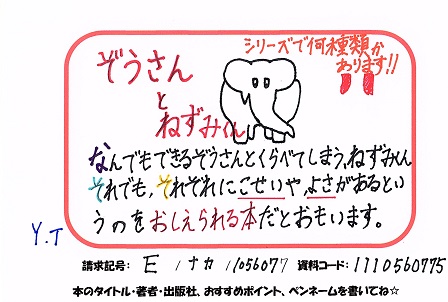 シリーズで何種類か
あります!!
ぞうさん
と
ねずみくん
なんでもできるぞうさんとくらべてしまう、ねずみくん
それでも、それぞれにこせいや、よさがあるとい
うのをおしえられる本だとおもいます。
Y.T
請求記号: E /ナカ /1056077 資料コード: 1110560775
本のタイトル・著者・出版社、おすすめポイント、ペンネームを書いてね☆